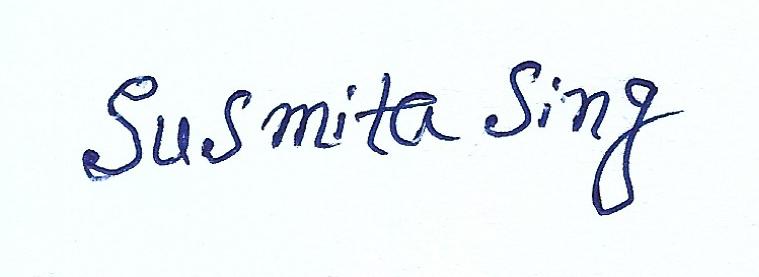 Susmita Sing